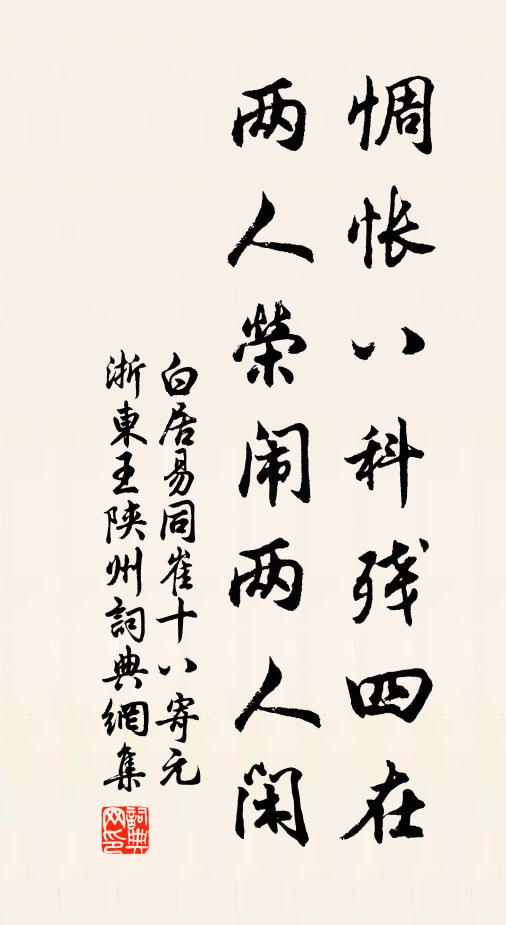 惆怅八科残四在
两人榮闹两人闲
白居易同崔十八寄元
浙東王陕州詞典網集
詞典网印